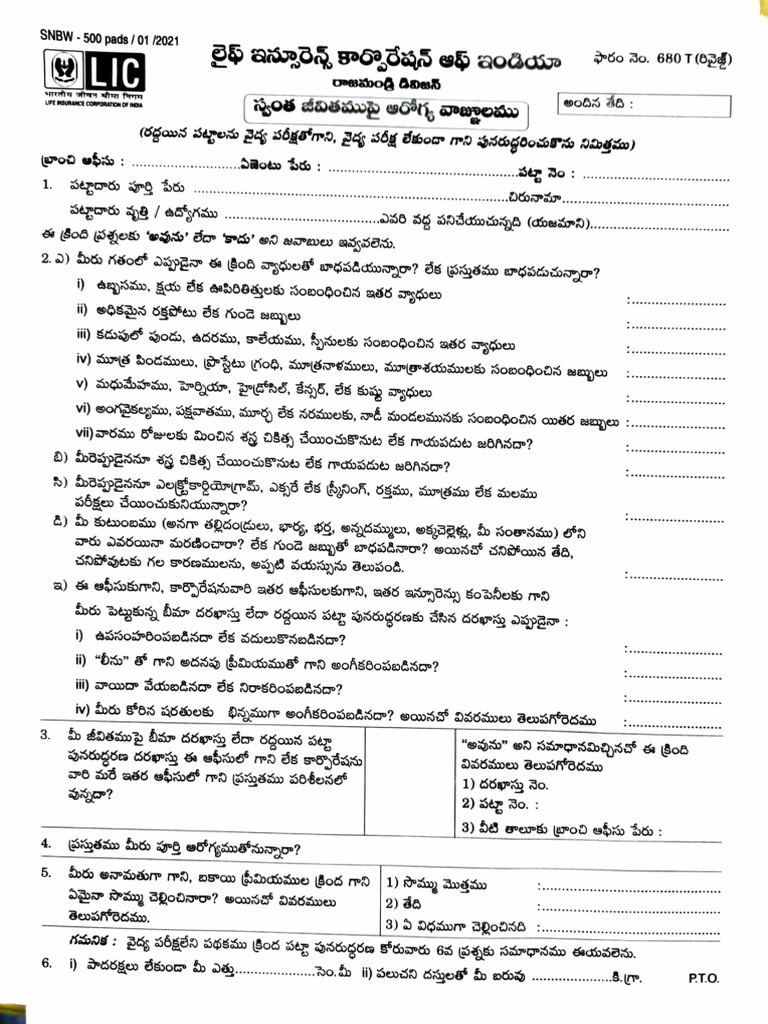 SNBW - 500 pads / 01 /2021
LIC
भारतीय जीवन बीमा निगम
LIFE INSURANCE CORPORATION OF INDIA
లైఫ్ ఇన్సూరెన్స్ కార్పొరేషన్ ఆఫ్ ఇండియా
ఫారం నెం. 680 T (రివైజ్డ్)
రాజమండ్రి డివిజన్
స్వంత జీవితముపై ఆరోగ్య వాజ్ఞ్మూలము
అందిన తేది :
(రద్దయిన పట్టాలను వైద్య పరీక్షతోగాని, వైద్య పరీక్ష లేకుండా గాని పునరుద్ధరించుకొను నిమిత్తము)
బ్రాంచి ఆఫీసు : ........................ఏజెంటు పేరు : ........................................పట్టా నెం : ................................
1. పట్టాదారు పూర్తి పేరు ........................................................................చిరునామా........................................
పట్టాదారు వృత్తి / ఉద్యోగము ....................................ఎవరి వద్ద పనిచేయుచున్నది (యజమాని)................................
ఈ క్రింది ప్రశ్నలకు 'అవును' లేదా 'కాదు' అని జవాబులు ఇవ్వవలెను.
2. ఎ) మీరు గతంలో ఎప్పుడైనా ఈ క్రింది వ్యాధులతో బాధపడియున్నారా? లేక ప్రస్తుతము బాధపడుచున్నారా?
i) ఉబ్బసము, క్షయ లేక ఊపిరితిత్తులకు సంబంధించిన ఇతర వ్యాధులు :........................
ii) అధికమైన రక్తపోటు లేక గుండె జబ్బులు :........................
iii) కడుపులో పుండు, ఉదరము, కాలేయము, స్ప్లీనులకు సంబంధించిన ఇతర వ్యాధులు :........................
iv) మూత్ర పిండములు, ప్రొస్టేటు గ్రంధి, మూత్రనాళములు, మూత్రాశయములకు సంబంధించిన జబ్బులు :........................
v) మధుమేహము, హెర్నియా, హైడ్రోసిల్, కేన్సర్, లేక కుష్టు వ్యాధులు :........................
vi) అంగవైకల్యము, పక్షవాతము, మూర్ఛ లేక నరములకు, నాడీ మండలమునకు సంబంధించిన యితర జబ్బులు :........................
vii) వారము రోజులకు మించిన శస్త్ర చికిత్స చేయించుకొనుట లేక గాయపడుట జరిగినదా? :........................
బి) మీరెప్పుడైననూ శస్త్ర చికిత్స చేయించుకొనుట లేక గాయపడుట జరిగినదా? :........................
సి) మీరెప్పుడైననూ ఎలక్ట్రోకార్డియోగ్రామ్, ఎక్సరే లేక స్క్రీనింగ్, రక్తము, మూత్రము లేక మలము
పరీక్షలు చేయించుకునియున్నారా? :........................
డి) మీ కుటుంబము (అనగా తల్లిదండ్రులు, భార్య, భర్త, అన్నదమ్ములు, అక్కచెల్లెళ్లు, మీ సంతానము) లోని
వారు ఎవరయినా మరణించారా? లేక గుండె జబ్బుతో బాధపడినారా? అయినచో చనిపోయిన తేది,
చనిపోవుటకు గల కారణములను, అప్పటి వయస్సును తెలుపండి. :........................
ఇ) ఈ ఆఫీసుకుగాని, కార్పొరేషనువారి ఇతర ఆఫీసులకుగాని, ఇతర ఇన్సూరెన్సు కంపెనీలకు గాని
మీరు పెట్టుకున్న బీమా దరఖాస్తు లేదా రద్దయిన పట్టా పునరుద్ధరణకు చేసిన దరఖాస్తు ఎప్పుడైనా :
i) ఉపసంహరింపబడినదా లేక వదులుకొనబడినదా? :........................
ii) "లీను" తో గాని అదనపు ప్రీమియముతో గాని అంగీకరింపబడినదా? :........................
iii) వాయిదా వేయబడినదా లేక నిరాకరింపబడినదా? :........................
iv) మీరు కోరిన షరతులకు భిన్నముగా అంగీకరింపబడినదా? అయినచో వివరములు తెలుపగోరెదము :........................
3. మీ జీవితముపై బీమా దరఖాస్తు లేదా రద్దయిన పట్టా
పునరుద్ధరణ దరఖాస్తు ఈ ఆఫీసులో గాని లేక కార్పొరేషను
వారి మరే ఇతర ఆఫీసులో గాని ప్రస్తుతము పరిశీలనలో
వున్నదా?
"అవును" అని సమాధానమిచ్చినచో ఈ క్రింది
వివరములు తెలుపగోరెదము
1) దరఖాస్తు నెం.
2) పట్టా నెం. :
3) వీటి తాలూకు బ్రాంచి ఆఫీసు పేరు :
4. ప్రస్తుతము మీరు పూర్తి ఆరోగ్యముతోనున్నారా?
5. మీరు అనామతుగా గాని, బకాయి ప్రీమియముల క్రింద గాని
ఏమైనా సొమ్ము చెల్లించినారా? అయినచో వివరములు
తెలుపగోరెదము.
1) సొమ్ము మొత్తము :........................
2) తేది :........................
3) ఏ విధముగా చెల్లించినది :........................
గమనిక : వైద్య పరీక్షలేని పథకము క్రింద పట్టా పునరుద్ధరణ కోరువారు 6వ ప్రశ్నకు సమాధానము ఈయవలెను.
6. i) పాదరక్షలు లేకుండా మీ ఎత్తు....................సెం.మీ ii) పలుచని దస్తులతో మీ బరువు ....................కి.గ్రా. P.T.O.